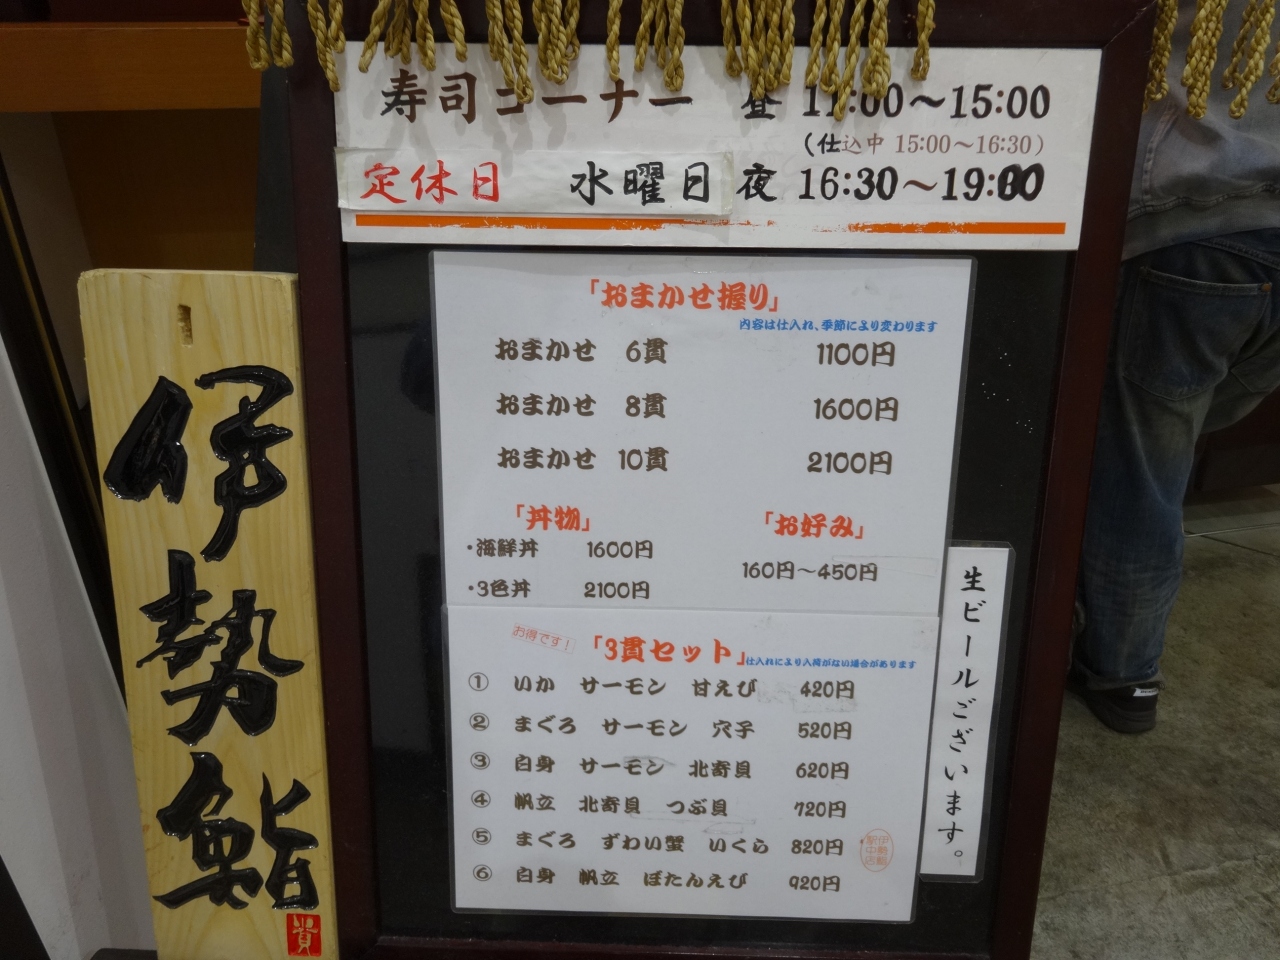 寿司コーナー 昼 11:00～15:00
(仕込中 15:00～16:30)
定休日 水曜日 夜 16:30～19:00
「おまかせ握り」
内容は仕入れ、季節により変わります
おまかせ 6貫 1100円
おまかせ 8貫 1600円
おまかせ 10貫 2100円
「丼物」
・海鮮丼 1600円
・3色丼 2100円
「お好み」
160円～450円
お得です！
「3貫セット」
仕入れにより入荷がない場合があります
① いか サーモン 甘えび 420円
② まぐろ サーモン 穴子 520円
③ 白身 サーモン 北寄貝 620円
④ 帆立 北寄貝 つぶ貝 720円
⑤ まぐろ ずわい蟹 いくら 820円
⑥ 白身 帆立 ぼたんえび 920円
伊勢鮨
駅中店
生ビールございます。
伊勢鮨